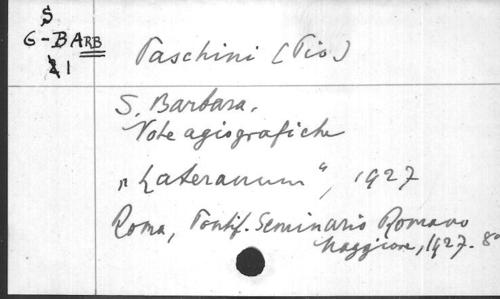 S
G-BARB
1
Paschini (Pio)
S. Barbara.
Note agiografiche
„Lateranum“, 1927
Roma, Pontif. Seminario Romano
Maggiore, 1927. 8°